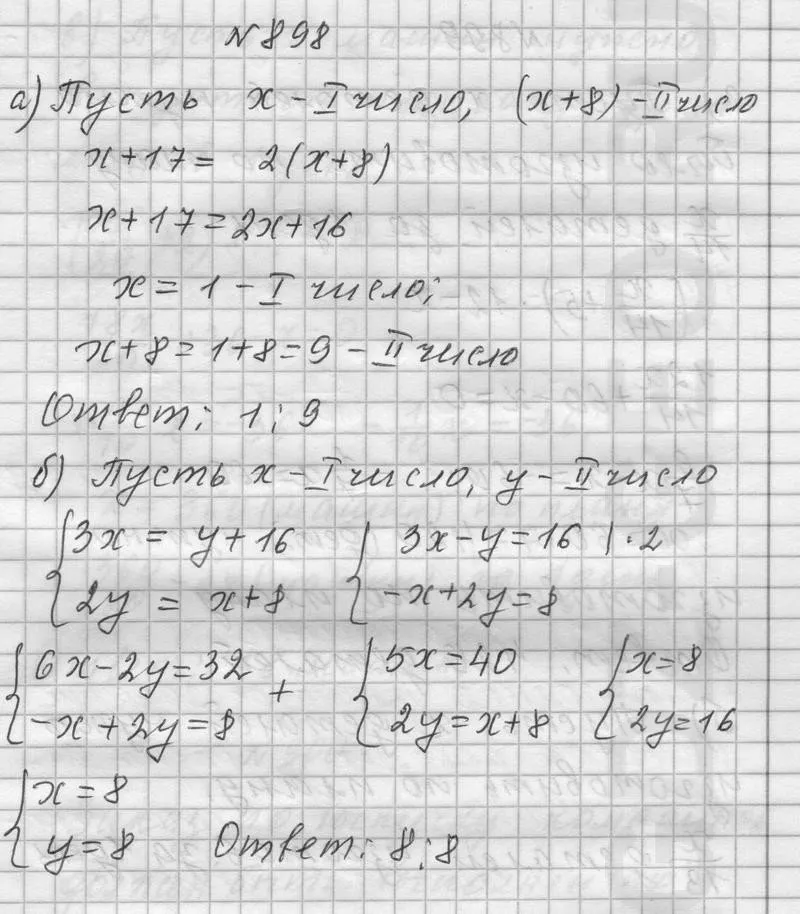 №898
а) Пусть x - I число, (x+8) - II число
x+17 = 2(x+8)
x+17=2x+16
x = 1 - I число;
x+8=1+8=9 - II число
Ответ: 1; 9
б) Пусть x - I число, y - II число
{3x = y+16 {3x-y=16 | ·2
{2y = x+8 {-x+2y=8
{6x-2y=32 + {5x=40 {x=8
{-x+2y=8 {2y=x+8 {2y=16
{x=8
{y=8 Ответ: 8; 8